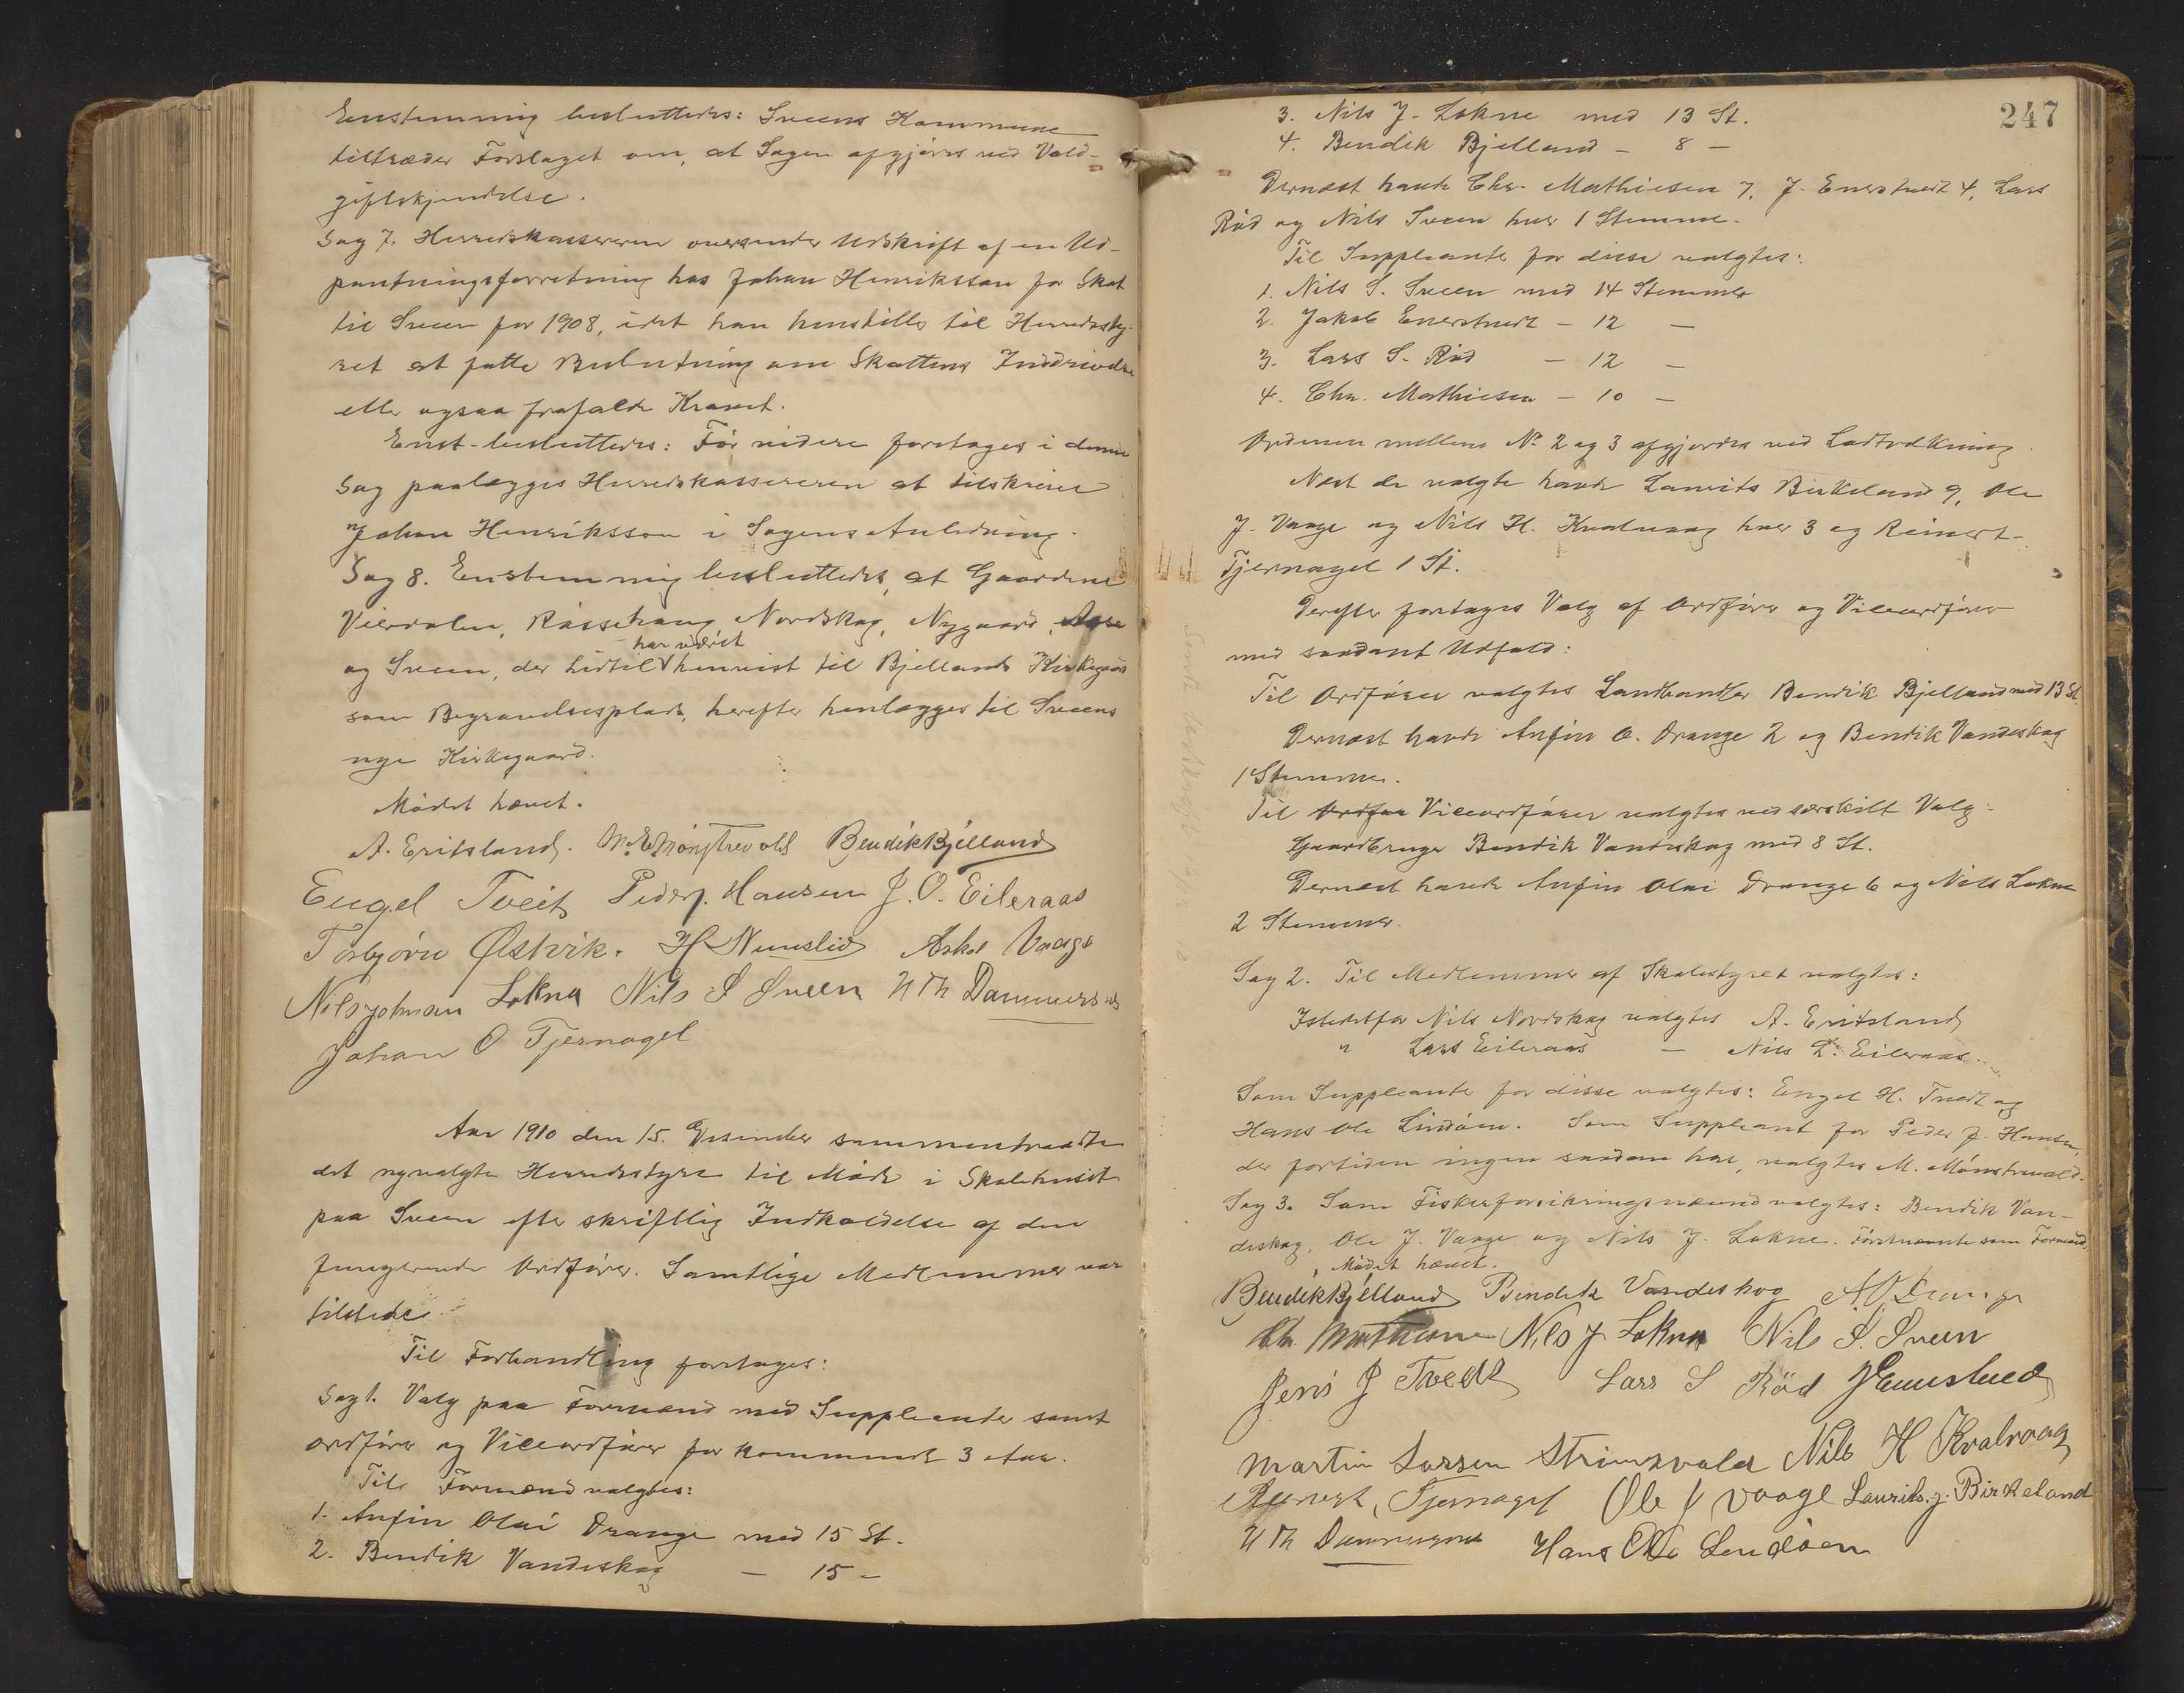 Enstemmig besluttedes: Sveens Kommune
tiltræder Forslaget om, at Sagen afgjøres ved Vold-
giftskjendelse.
Sag 7. Herredskassereren oversender Udskrift af en Ud-
pantningsforretning hos Johan Henriksson for Skat
til Sveen for 1908, idet han henstiller til Herredssty-
ret at fatte Beslutning om Skattens Inddrivelse
eller ogsaa frafalde Kravet.
Enst. besluttedes: Før videre foretages i denne
Sag paalægges Herredskassereren at tilskrive
Johan Henriksson i Sagens Anledning.
Sag 8. Enstemmig besluttedes, at Gaardene
Vierdalen, Rässehaug Nordskog, Nygaard,
og Sveen, der hidtil har været henvist til Bjellands Kirkegaard
som Begravelsesplads, herefter henlægges til Sveens
nye Kirkegaard.
Mødet hævet.
A. Eritsland. M. E. Mønstrevold Bendik Bjelland
Engel Tveit Peder J. Hansen J. O. Eileraas
Torbjørn Østvik. H Nernslid Askel Vaage
Nils Johnson Lokna Nils S Sveen N Th Dammersnes
Johan O Tjernagel
Aar 1910 den 15. Desember sammentraadte
det nyvalgte Herredsstyre til Møde i Skolehuset
paa Sveen efter skriftlig Indkaldelse af den
fungerende Ordfører. Samtlige Medlemmer var
tilstede.
Til Forhandling foretages:
Sag 1. Valg paa Formænd med Suppleanter samt
ordfører og Viceordfører for kommende 3 Aar.
Til Formænd valgtes:
1. Anfin Olai Drange med 15 St.
2. Bendik Vandeskog — 15 —
247
3. Nils J. Lokne med 13 St.
4. Bendik Bjelland — 8 —
Dernæst havde Chr. Mathiesen 7, J. Enerstvedt 4, Lars
Rød og Nils Sveen hver 1 Stemme.
Til Suppleanter for disse valgtes:
1. Nils S. Sveen med 14 Stemmer
2. Jakob Enerstvedt — 12 —
3. Lars S. Rød — 12 —
4. Chr. Mathiesen — 10 —
Ordenen mellem No 2 og 3 afgjordes ved Lodtrækning
Næst de valgte havde Laurits Birkeland 9, Ole
J. Vaage og Nils H. Kvalvaag hver 3 og Reinert
Tjernagel 1 St.
Derefter foretages Valg af Ordfører og Viceordfører
med saadant Udfald:
Til Ordfører valgtes Landhandler Bendik Bjelland med 13 St.
Dernæst havde Anfin O. Drange 2 og Bendik Vandeskog
1 Stemme.
Til Ordfør Viceordfører valgtes ved særskilt Valg:
Gaardbruger Bendik Vandeskog med 8 St.
Dernæst havde Anfin Olai Drange 6 og Nils Lokne
2 Stemmer.
Sag 2. Til Medlemmer af Skolestyret valgtes:
Istedetfor Nils Nordskog valgtes A. Eritsland
" Lars Eileraas — Nils L. Eileraas.
Som Suppleanter for disse valgtes: Engel H. Tvedt og
Hans Ole Lindøen. Som Suppleant for Peder J. Hansen,
der fortiden ingen saadan har, valgtes M. Mønstrevold.
Sag 3. Som Fiskerforsikringsnævnd valgtes: Bendik Van-
deskog, Ole J. Vaage og Nils J. Lokne. Førstnævnte som Formand.
Mødet hævet.
Bendik Bjelland Bendik Vandeskog A O Drange
Ch. Mathiesen Nils J Lokna Nils S. Sveen
Jens J Tvedt Lars S Rød
Martin Larsen Strømsvold Nils H Kvalvaag
Reinert Tjernagel Ole J Vaage Laurits J. Birkeland
N Th Dammersnes Hans Ole Lindøen